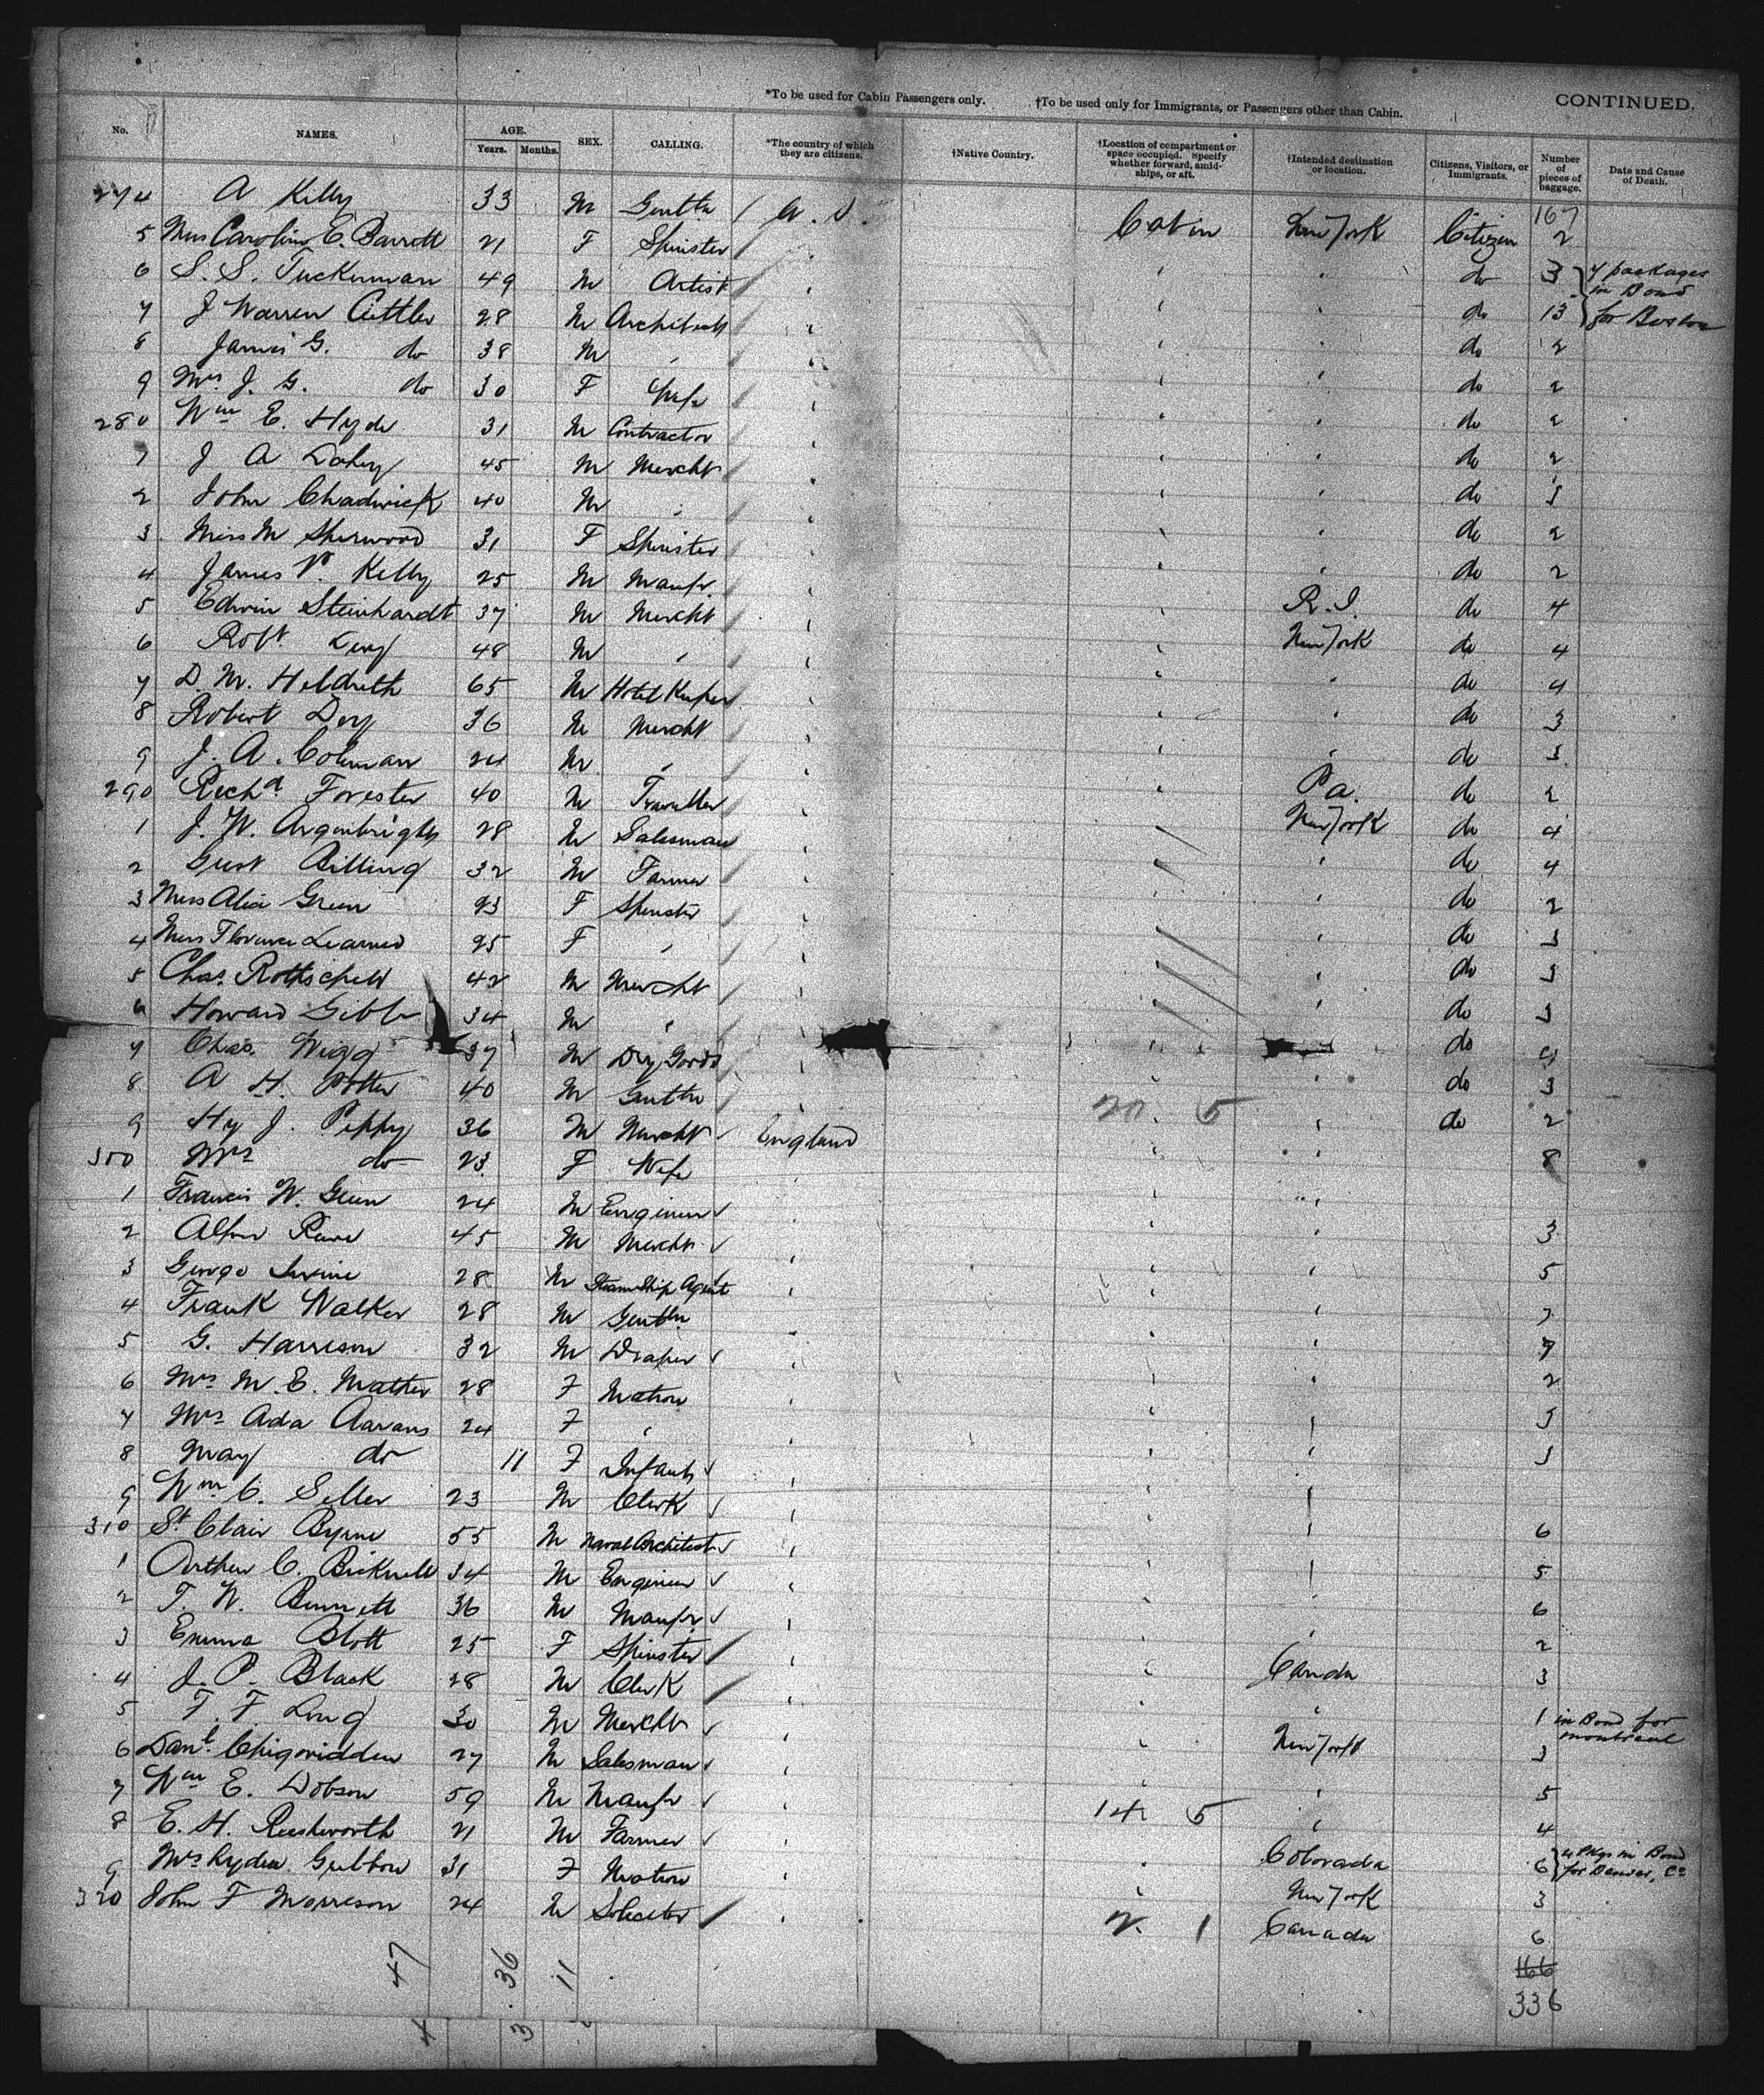 *To be used for Cabin Passengers only. †To be used only for Immigrants, or Passengers other than Cabin. CONTINUED.
No. NAMES. AGE. Years. Months. SEX. CALLING. *The country of which they are citizens. †Native Country. †Location of compartment or space occupied. Specify whether forward, amidships, or aft. †Intended destination or location. Citizens, Visitors, or Immigrants. Number of pieces of baggage. Date and Cause of Death.
167
274 A Kelly 33 M Gentln U.S. Cabin New York Citizen 2
5 Miss Caroline E. Barrett 21 F Spinster do 3
6 S. S. Tuckerman 49 M Artist do 13 packages in Bond for Boston
7 J Warren Cuttler 28 M Architect do 2
8 James G. do 38 M do 2
9 Mrs J. G. do 30 F Wife do 2
280 Wm E. Hyde 31 M Contractor do 2
J A 45 M Mercht do
2 John Chadwick 40 M do 2
3 Miss M Sherwood 31 F Spinster do 2
4 James P. Kelly 25 M Manfr. R.I. do 4
5 Edwin Steinhardt 37 M Mercht New York do 4
6 Robt 48 M do 4
7 D. M. Hildreth 65 M Hotel Keeper do 3
8 Robert 36 M Mercht do 3
9 J. A. Coleman 24 M Pa. do 2
290 Richd Forester 40 M Traveller New York do 4
1 J. W. Argenbright 28 M Salesman do 4
2 Gust Billing 32 M Farmer do 2
3 Miss Alice Green 23 F Spinster do 3
4 Miss Florence Learned 25 F do 3
5 Chas. Rothschild 42 M Mercht do 3
6 Howard Gibb 34 M do
7 Chas. Wigg 37 M Dry Goods do 3
8 A H. Potter 40 M Gentln 20 5 do 2
9 Hy J. 36 M Mercht England 8
300 Mrs do 23 F Wife
1 Francis W. Green 24 M Engineer 3
2 45 M Mercht 5
3 George Irvine 28 M Steam Ship Agent
4 Frank Walker 28 M Gentln
5 G. Harrison 32 M Draper 2
6 Mrs M. E. Mather 28 F Matron
7 Mrs Ada Aarons 24 F
8 May do 11 F Infant
9 Wm C. Seller 23 M Clerk 6
310 St Clair Byrne 55 M Naval Architect 5
1 Arthur C. Bicknell 34 M Engineer 6
2 T. W. Bennett 36 M Manfr 2
3 Emma Blott 25 F Spinster Canada 3
4 J. P. Black 28 M Clerk 1 in Bond for Montreal
5 T. F Long 30 M Mercht New York 3
6 Danl. Chigwidden 27 M Salesman 5
7 Wm E. Dobson 59 M Manfr 14 5 4
8 E. H. Rushworth 21 M Farmer Colorado 6 4 Pkgs in Bond for Denver, Co
9 Mrs Lydia Gribbon 31 F Matron New York 3
320 John F Morrison 24 M Solicitor 2 1 Canada 6
47 36 11
166
336